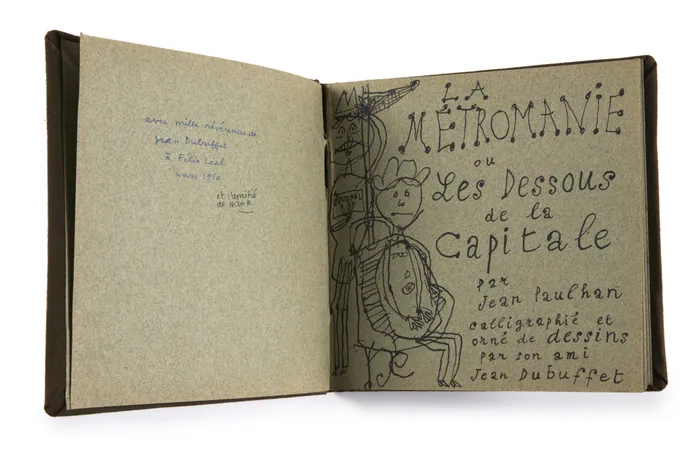 avec mille révérences de
Jean Dubuffet
à Felix Leal
mars 1950
et l'amitié
de
LA
MÉTROMANIE
ou
Les Dessous
de la
Capitale
par
Jean Paulhan
calligraphié et
orné de dessins
par son ami
Jean Dubuffet
JOURNAL